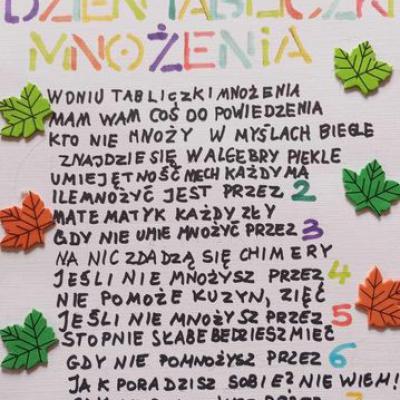 DZIEŃ TABLICZKI
MNOŻENIA
W DNIU TABLICZKI MNOŻENIA
MAM WAM COŚ DO POWIEDZENIA
KTO NIE MNOŻY W MYŚLACH BIEGLE
ZNAJDZIE SIĘ W ALGEBRY PIEKLE
UMIEJĘTNOŚĆ NIECH KAŻDY MA
ILE MNOŻYĆ JEST PRZEZ 2
MATEMATYK KAŻDY ZŁY
GDY NIE UMIE MNOŻYĆ PRZEZ 3
NA NIC ZDADZĄ SIĘ CHIMERY
JEŚLI NIE MNOŻYSZ PRZEZ 4
NIE POMOŻE KUZYN, ZIĘĆ
JEŚLI NIE MNOŻYSZ PRZEZ 5
STOPNIE SŁABE BĘDZIESZ MIEĆ
GDY NIE POMNOŻYSZ PRZEZ 6
JAK PORADZISZ SOBIE? NIE WIEM!